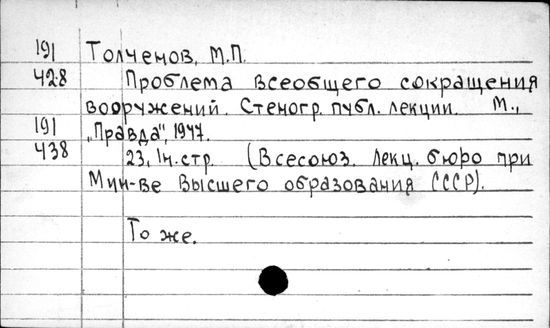 191 Толченов, М.П.
428 Проблема всеобщего сокращения
вооружений. Стеногр. публ. лекции. М.,
191 "Правда", 1947.
438 23, 1н. стр. (Всесоюз. лекц. бюро при
Мин-ве высшего образования СССР).
То же.